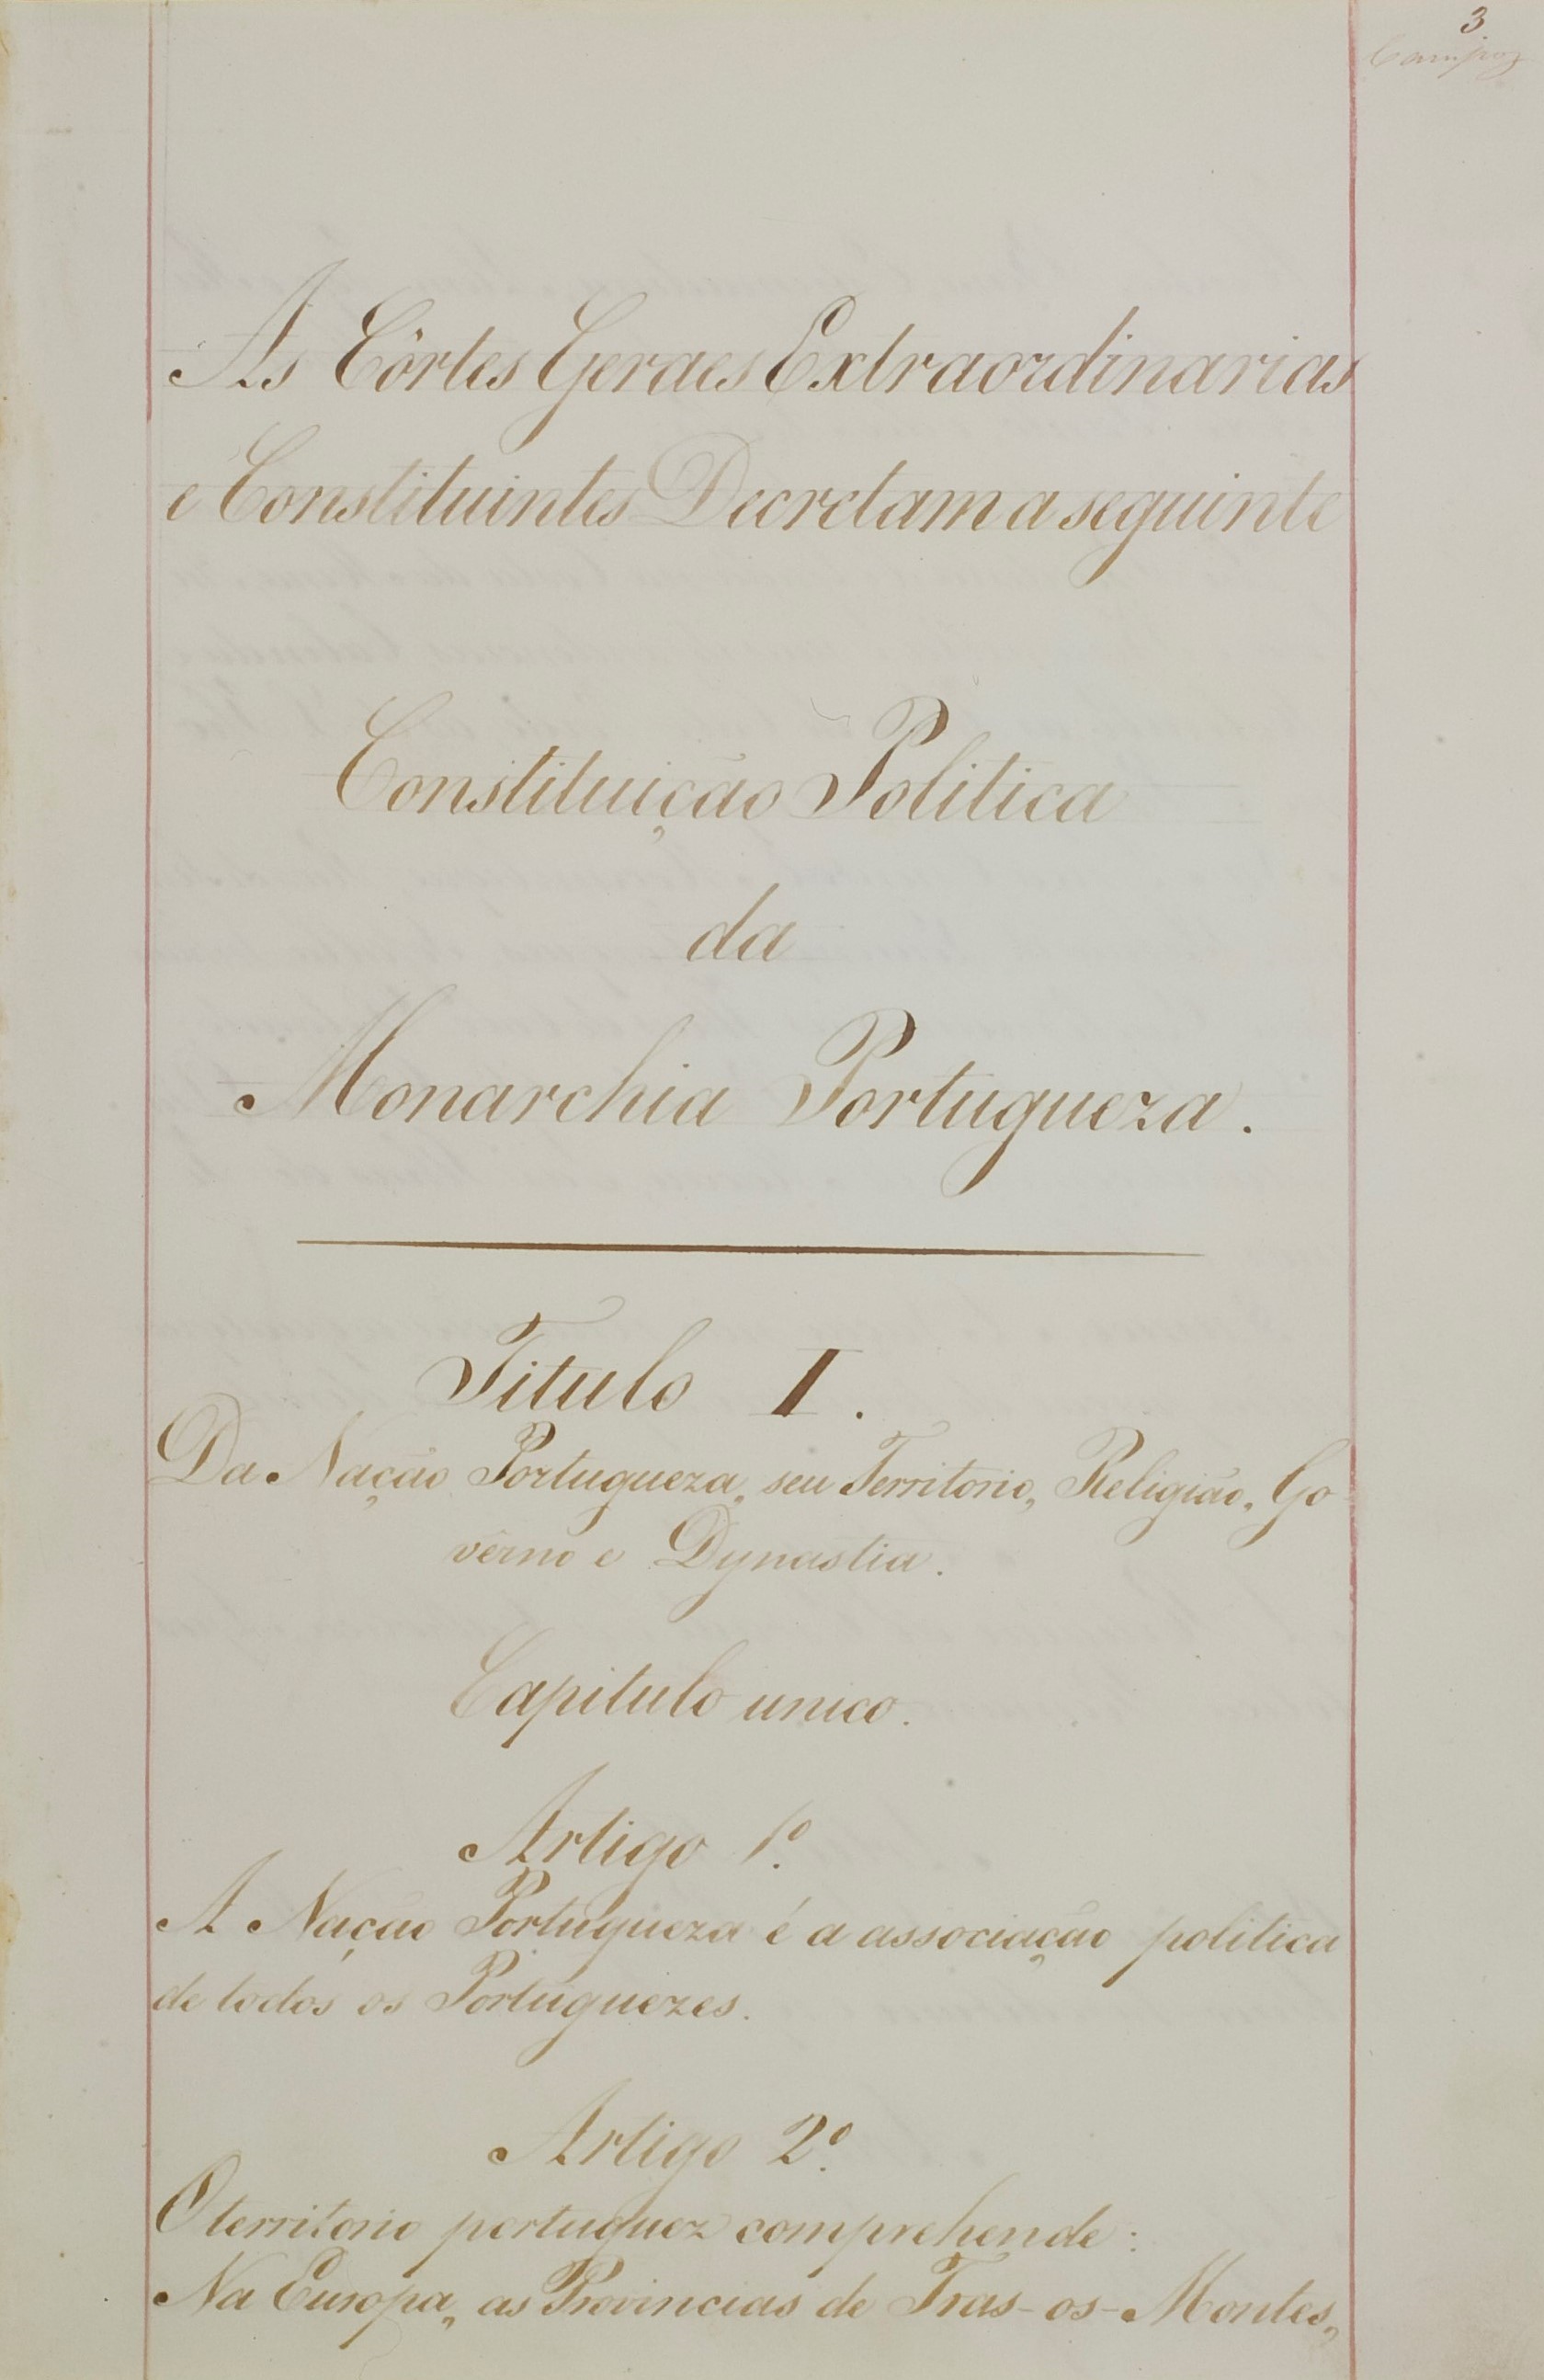 3
Campos
As Côrtes Geraes Extraordinarias
e Constituintes Decretam a seguinte
Constituição Politica
da
Monarchia Portugueza.
Titulo I.
Da Nação Portugueza, seu Territorio, Religião, Go
vêrno e Dynastia.
Capitulo unico.
Artigo 1º.
A Nação Portugueza é a associação politica
de todos os Portuguezes.
Artigo 2º.
O territorio portuguez comprehende:
Na Europa, as Provincias de Tras-os-Montes,